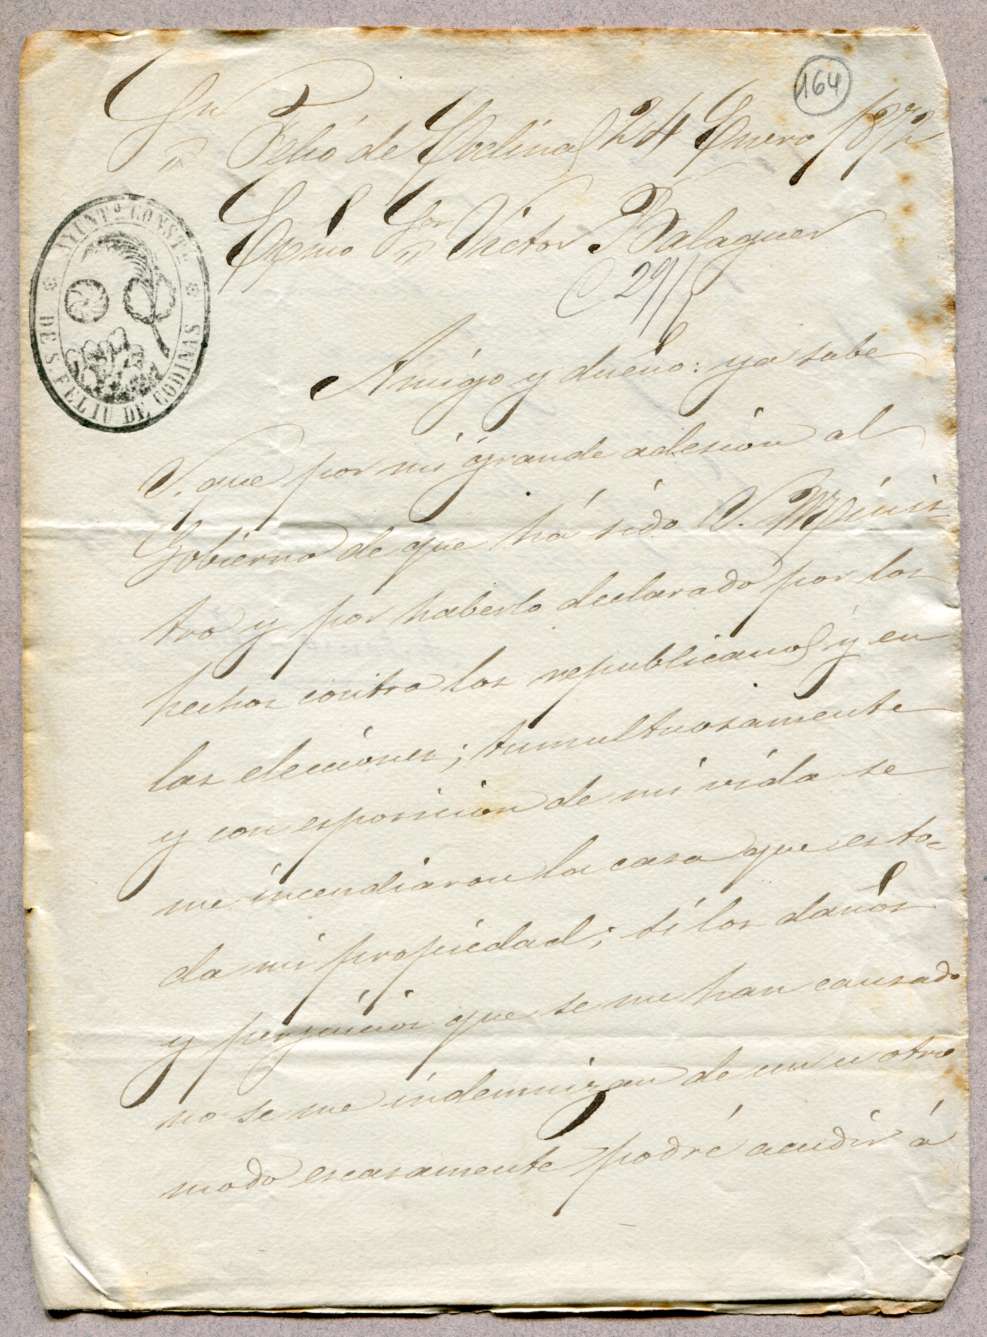 164
Sn Felió de Codinas 24 Enero 1872
AYUNTO. CONSTL. DE S. FELIU DE CODINAS
Exmo Sor Dn Victor Balaguer
C 29/1
Amigo y dueño: ya sabe
V. que por mi grande adesión al
Gobierno de que há sido V. Minis
tro y por haberlo declarado por los
hechos contra los republicanos y en
las elecciónes; tumultuosamente
y con esposicion de mi vida se
me incendiaron la casa que es to=
da mi propiedad; si los daños
y perjuicios que se me han causado
no se me indemnizan de un u otro
modo escasamente podré acudir á